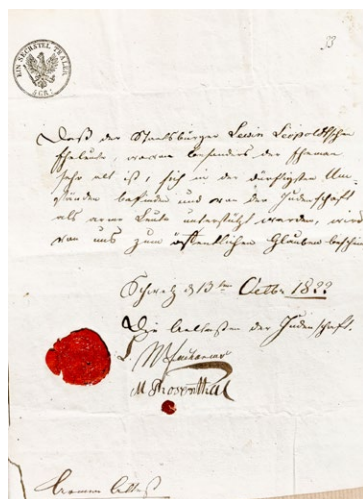 33
EIN SECHSTEL THALER
4 GR.
Daß der Staatsbürger Lewin Leopoldtsche
Eheleute, wovon besonders der Ehemann
sehr alt ist, sich in der dürftigsten Um-
ständen befinde und von der Judenschaft
als arme Leute unterstützt werden, wird
von uns zum öffentlichen Glauben beschei
Schwetz d 13ten Octbr 1822
Die Aeltesten der Judenschaft.
M Rosenthal
Armen Attest